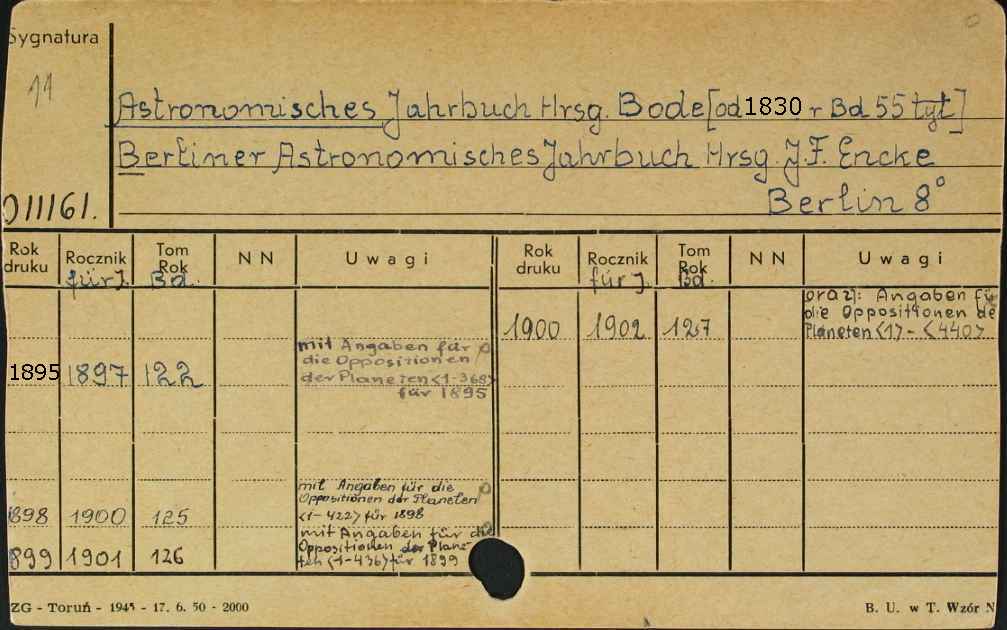 Sygnatura
11
Astronomisches Jahrbuch Hrsg. Bode [od 1830 r Bd 55 tyt]
Berliner Astronomisches Jahrbuch Hrsg. J.F. Encke
Berlin 8°
011161.
Rok druku Rocznik Tom Rok NN Uwagi Rok druku Rocznik Tom Rok NN Uwagi
für J. Bd. für J. Bd.
1900 1902 127 oraz): Angaben fü
die Oppositionen de
Planeten <1> - <440>
1895 1897 122 mit Angaben für
die Oppositionen
der Planeten <1-368>
für 1895
898 1900 125 mit Angaben für die
Oppositionen der Planeten
<1-422> für 1898
899 1901 126 mit Angaben für die
Oppositionen der Plane-
ten <1-436> für 1899
ZG - Toruń - 1945 - 17. 6. 50 - 2000
B. U. w T. Wzór N